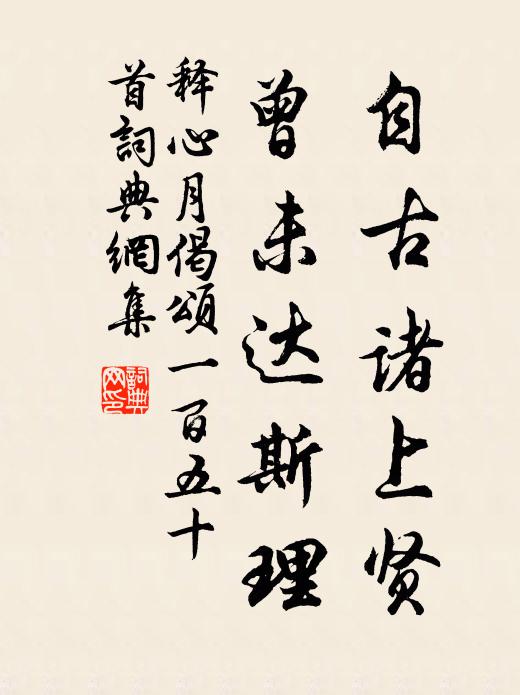 自古诸上贤
曾未达斯理
释心月偈颂一百五十
首詞典網集
詞典網印